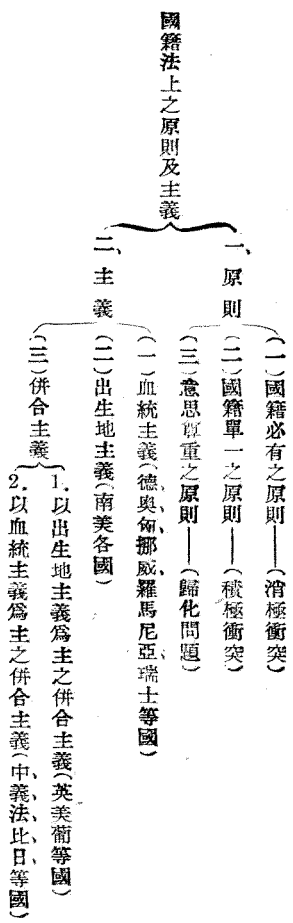 國籍法上之原則及主義
一、原則
(一)國籍必有之原則——(消極衝突)
(二)國籍單一之原則——(積極衝突)
(三)意思尊重之原則——(歸化問題)
二、主義
(一)血統主義(德、奧、匈、挪威、羅馬尼亞、瑞士等國)
(二)出生地主義(南美各國)
(三)併合主義
1.以出生地主義爲主之併合主義(英美葡等國)
2.以血統主義爲主之併合主義(中、義、法、比、日等國)